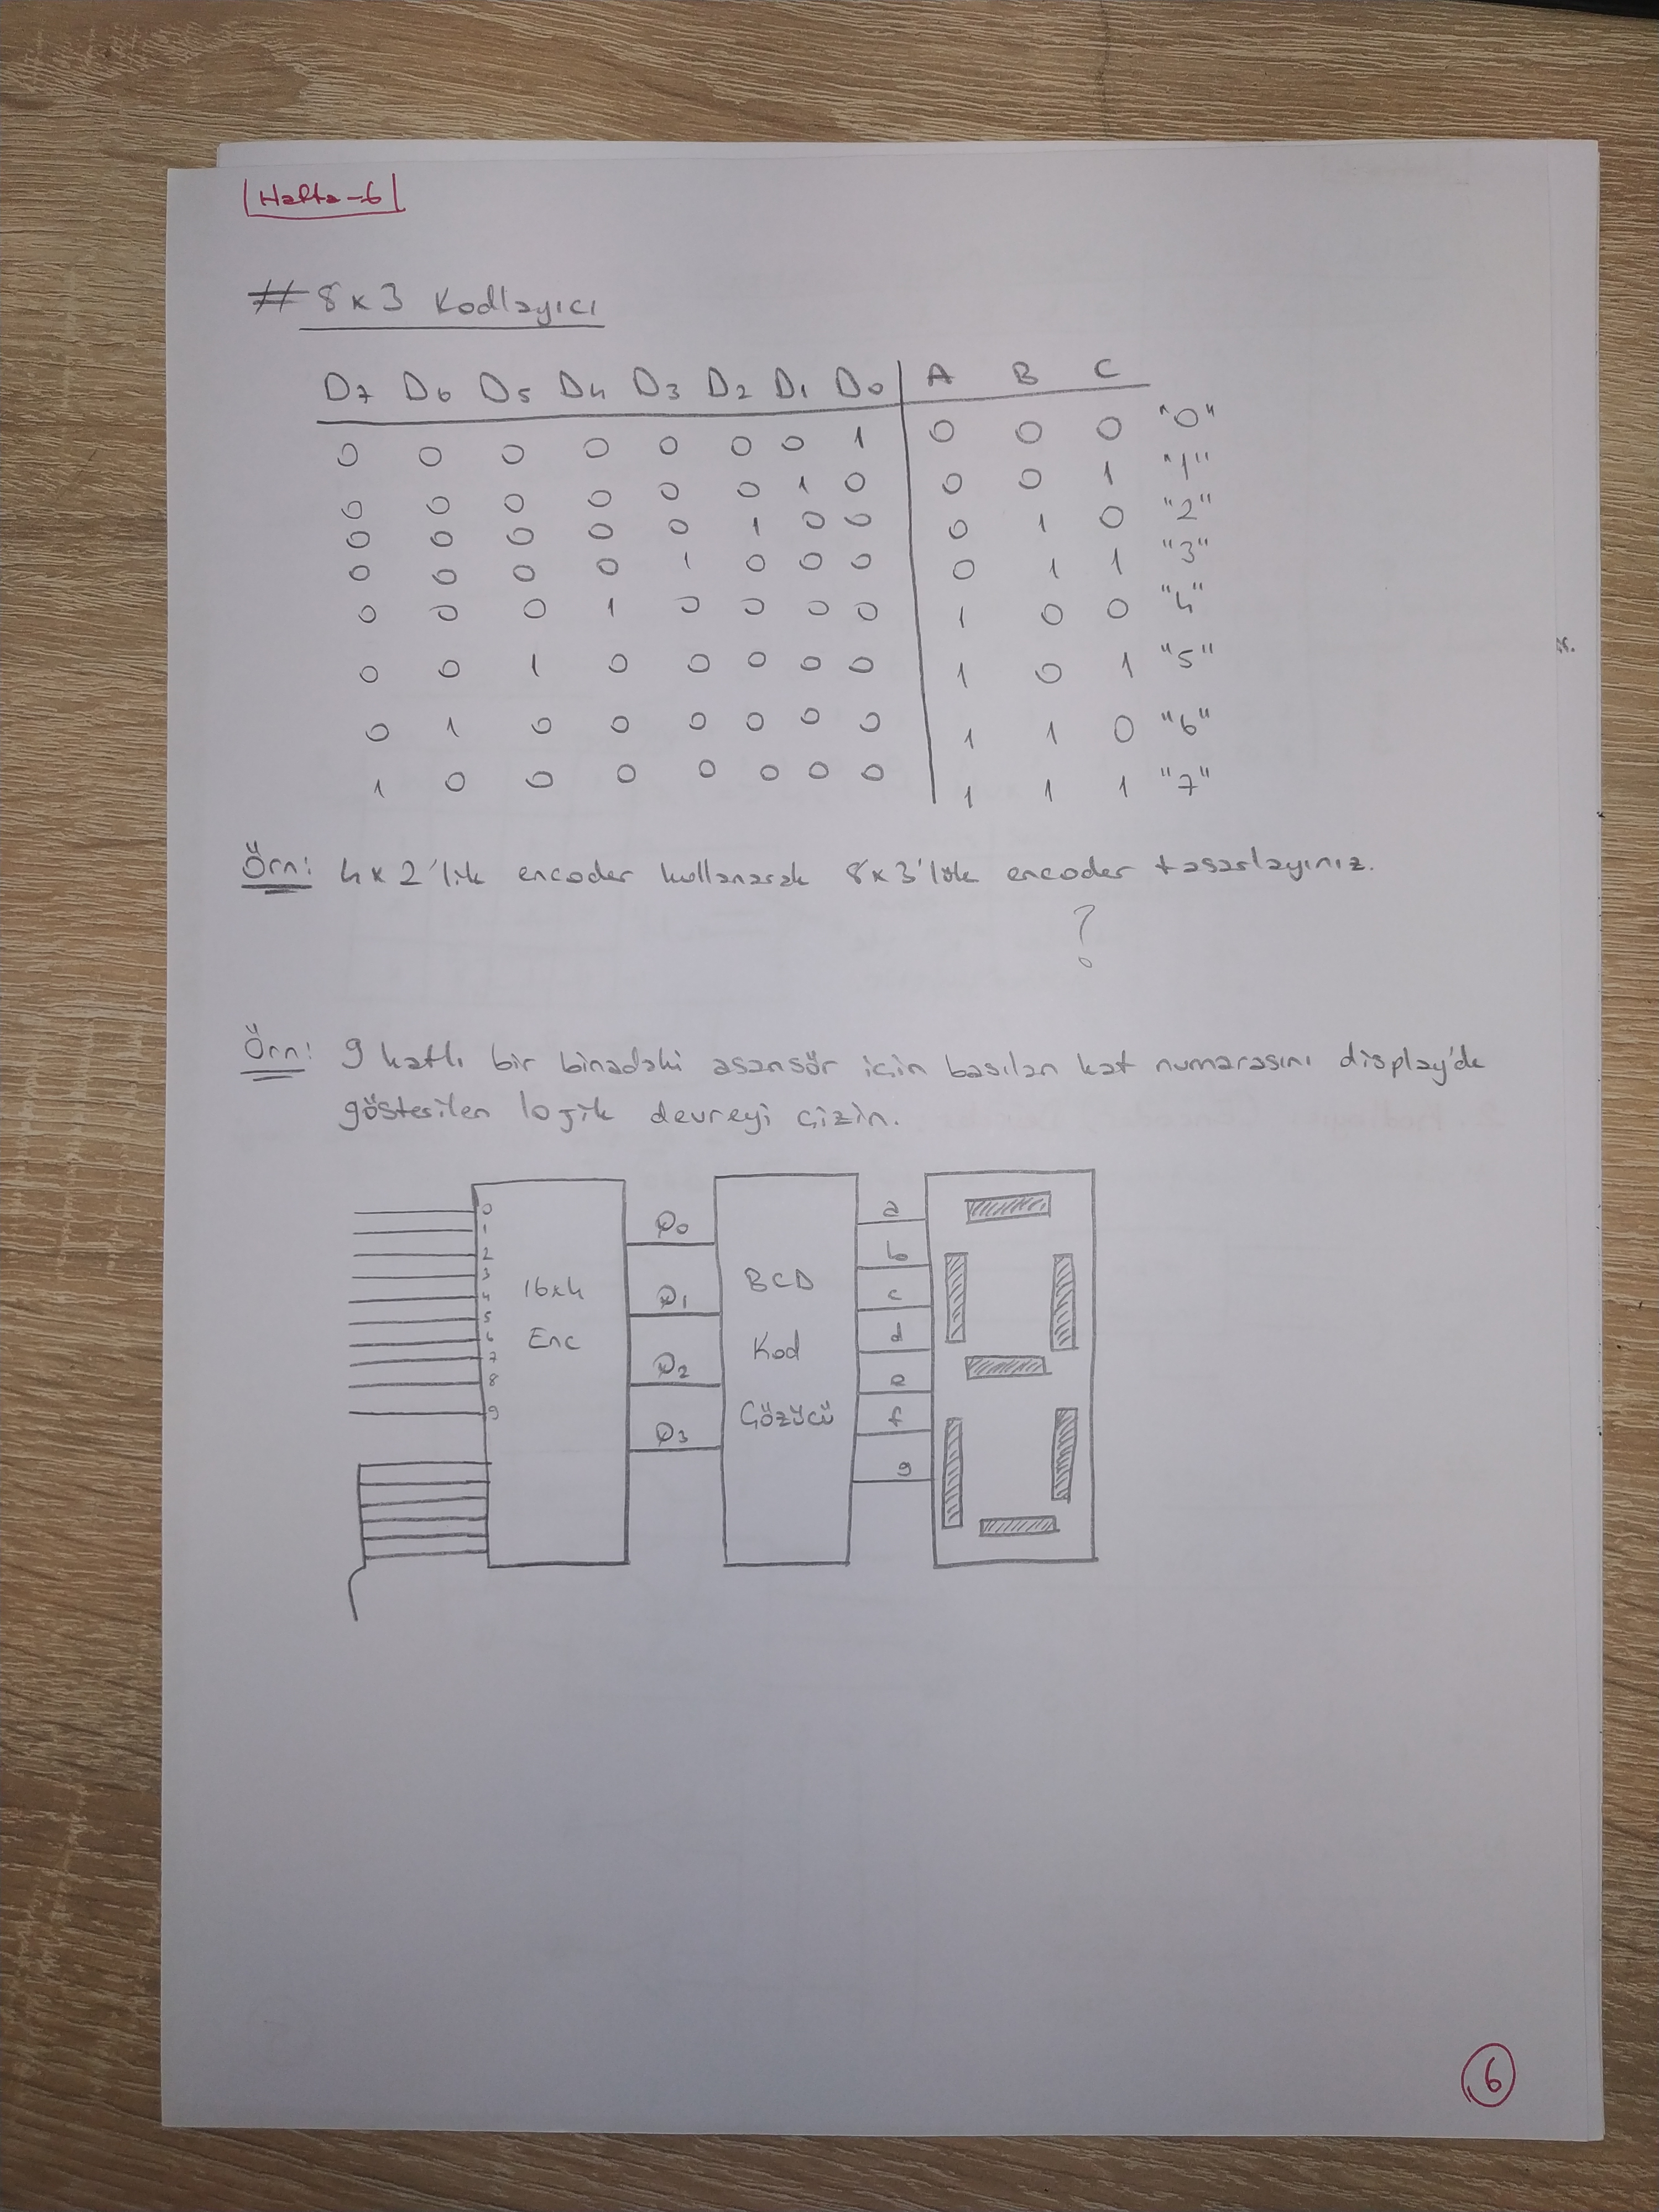 Hafta-6
# 8x3 Kodlayıcı
D7 D6 D5 D4 D3 D2 D1 D0 A B C
0 0 0 0 0 0 0 1 0 0 0 "0"
0 0 0 0 0 0 1 0 0 0 1 "1"
0 0 0 0 0 1 0 0 0 1 0 "2"
0 0 0 0 1 0 0 0 0 1 1 "3"
0 0 0 1 0 0 0 0 1 0 0 "4"
0 0 1 0 0 0 0 0 1 0 1 "5"
0 1 0 0 0 0 0 0 1 1 0 "6"
1 0 0 0 0 0 0 0 1 1 1 "7"
Örn: 4x2'lik encoder kullanarak 8x3'lük encoder tasarlayınız.
?
Örn: 9 katlı bir binadaki asansör için basılan kat numarasını display'de
gösterilen lojik devreyi çizin.
0
1
2
3
4
5
6
7
8
9
16x4
Enc
Q0
Q1
Q2
Q3
BCD
Kod
Çözücü
a
b
c
d
e
f
g
6